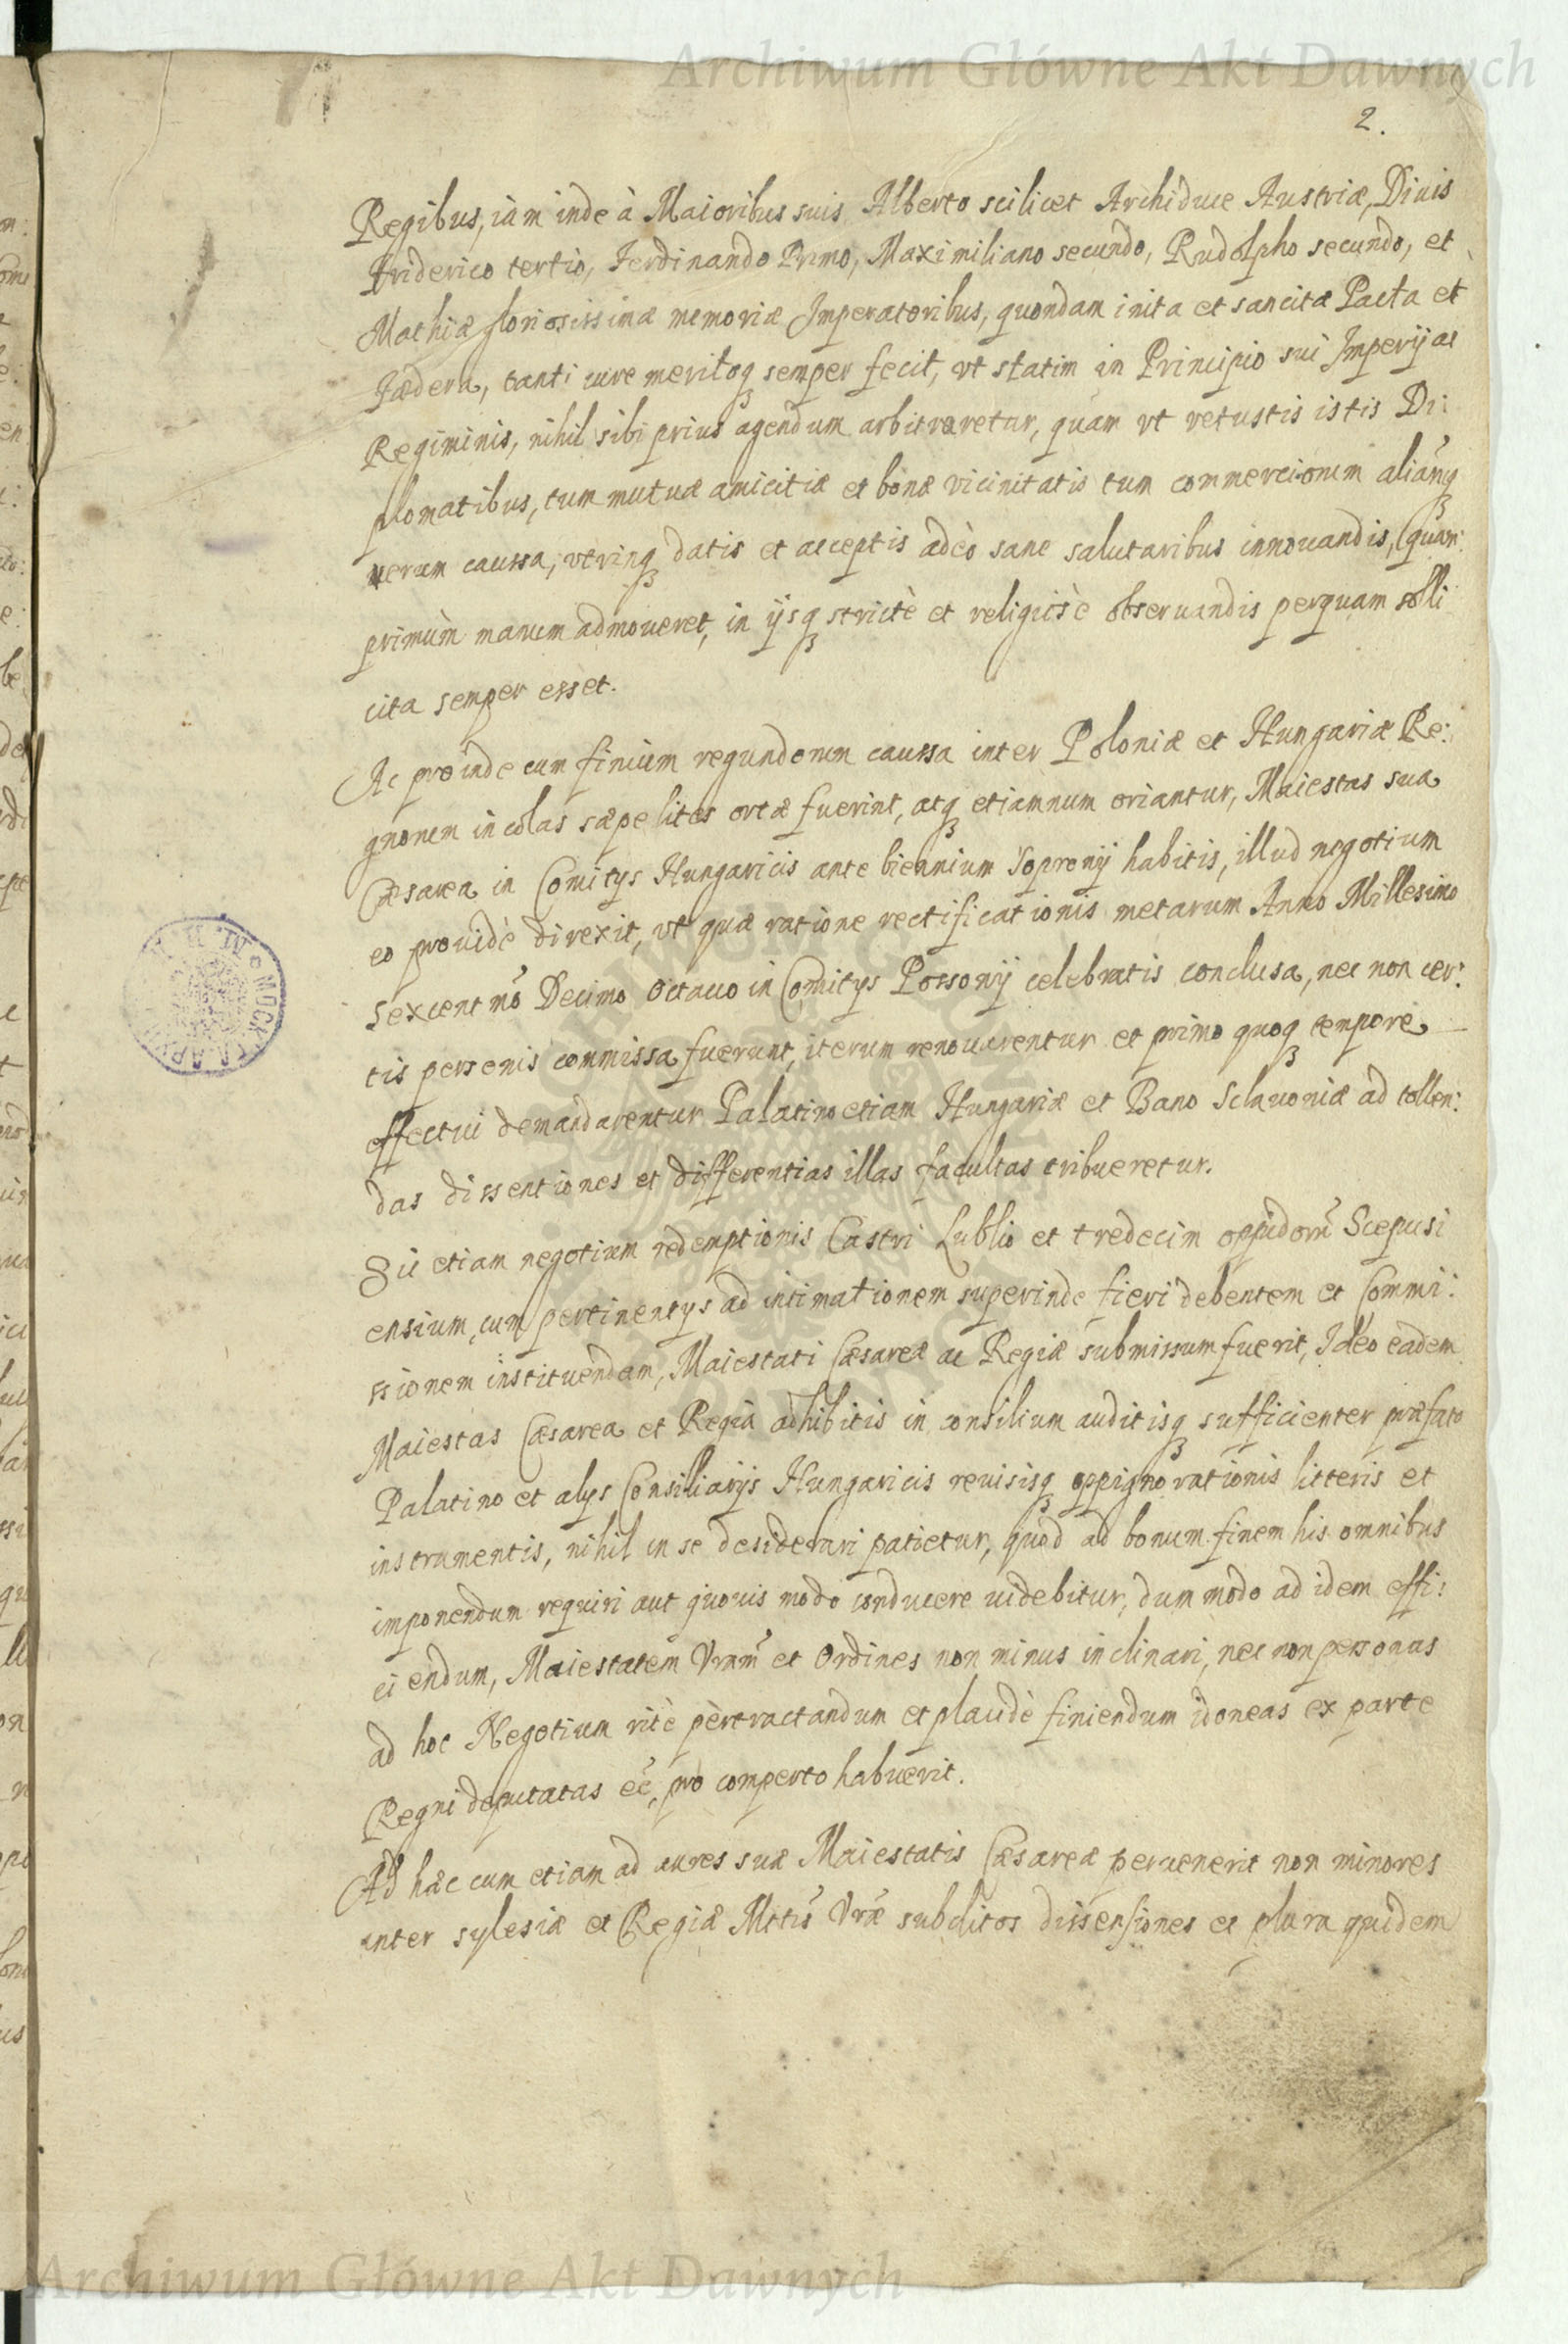 Archiwum Główne Akt Dawnych
2.
Regibus, iam inde à Maioribus suis Alberto scilicet Archiduce Austriæ, Diuis
Friderico tertio, Ferdinando Primo, Maximiliano secundo, Rudolpho secundo, et
Mathiæ gloriosissimæ memoriæ Imperatoribus, quondam inita et sancita Pacta et
Fœdera, tanti iure meritoq semper fecit, vt statim in Principio sui Imperij ac
Regiminis, nihil sibi prius agendum arbitraretur, quam vt vetustis istis Di:
plomatibus, tum mutuæ amicitiæ et bonæ vicinitatis tum commerciorum aliarūq
rerum caussa, vtrinq datis et acceptis adeò sane salutaribus innouandis, quam:
primùm manum admoueret, in ijsq strictè et religiosè obseruandis perquam solli
cita semper esset.
Ac proinde cum finium regundorum caussa inter Poloniæ et Hungariæ Re:
gnorum incolas sæpe lites ortæ fuerint, atq etiamnum oriantur, Maiestas sua
Cæsarea in Comitys Hungaricis ante biennium Sopronij habitis, illud negotium
eo prouidè direxit, vt quæ ratione rectificationis metarum Anno Millesimo
Sexcentmō Decimo Octauo in Comitys Possonij celebratis conclusa, nec non cer:
tis personis commissa fuerunt, iterum renouarentur et primo quoq tempore
effectui demandarentur Palatino etiam Hungariæ et Bano Sclauoniæ ad tollen:
das dissentiones et differentias illas facultas tribueretur.
Sic etiam negotium redemptionis Castri Lublio et tredecim oppidorū Scepusi
ensium, cum pertinentys ad intimationem superinde fieri debentem et Commi:
ssionem instituendam, Maiestati Cæsareæ ac Regiæ submissum fuerit, Ideo eadem
Maiestas Cæsarea et Regia adhibitis in consilium auditisq sufficienter præfato
Palatino et alys Consiliarijs Hungaricis reuisisq oppignorationis litteris et
instrumentis, nihil in se desiderari patietur, quod ad bonum finem his omnibus
imponendum requiri aut quouis modo conducere uidebitur, dum modo ad idem effi:
ciendum, Maiestatem Vrām et Ordines non minus inclinari, nec non personas
ad hoc Negotium ritè pèrtractandum et plaudè finiendum idoneas ex parte
Regni deputatas eē, pro comperto habuerit.
Ad hæc cum etiam ad aures suæ Maiestatis Cæsareæ peruenerit non minores
inter sylesiæ et Regiæ Mttis Vræ subditos dissensiones et plura quidem
Archiwum Główne Akt Dawnych